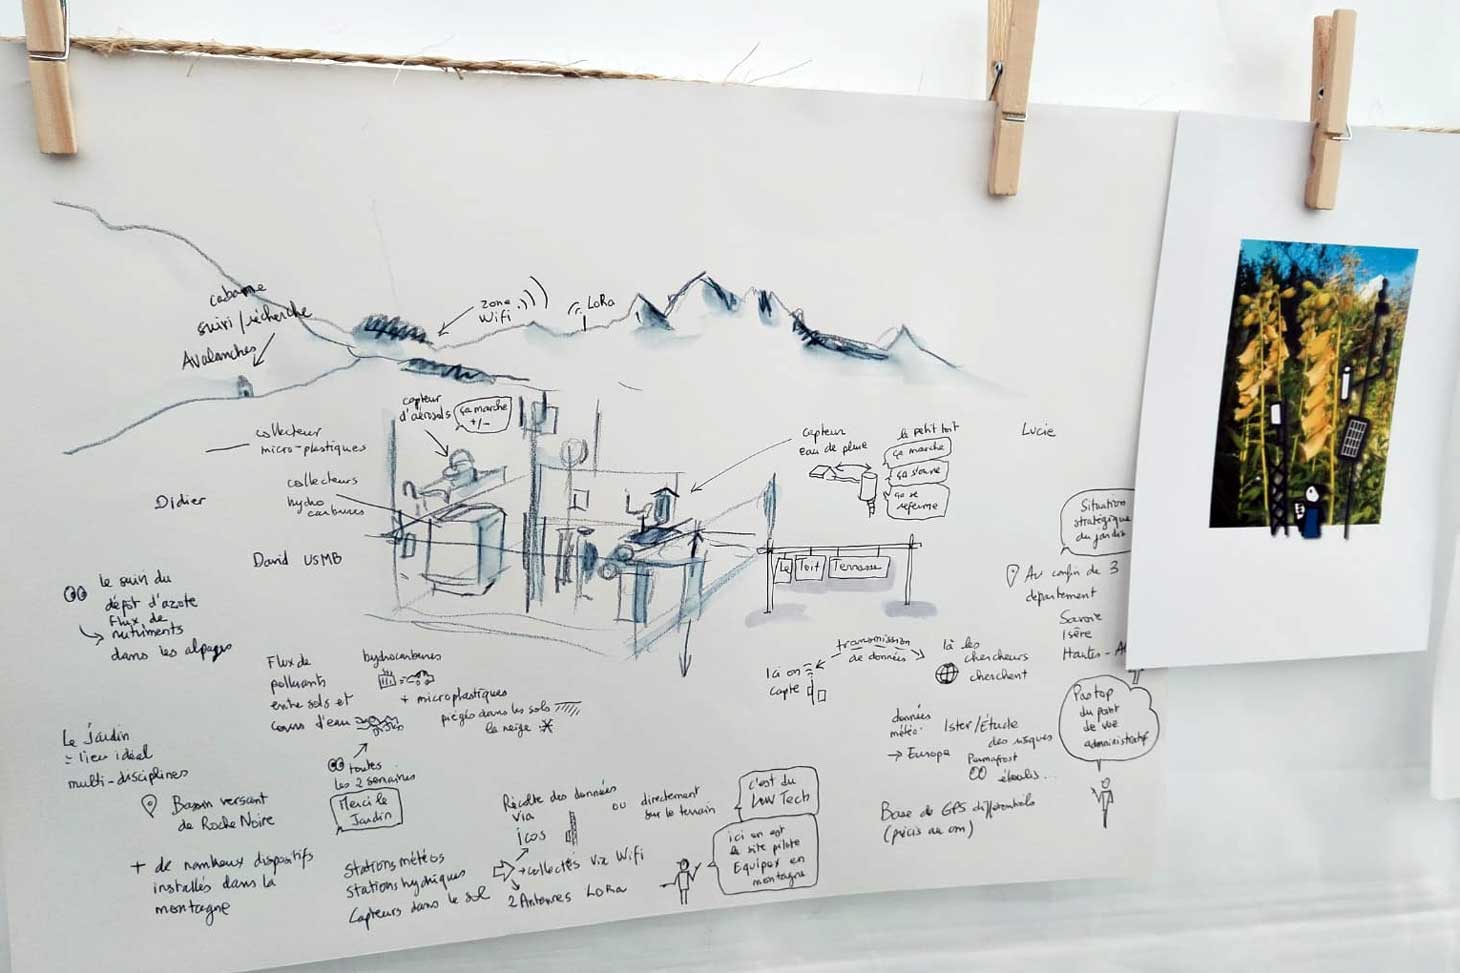 cabane
suivi/recherche
Avalanches
zone
Wifi
LoRa
capteur
d'aérosols
ça marche
+/-
collecteur
micro-plastiques
collecteurs
hydro
carbures
Didier
David USMB
capteur
eau de pluie
le petit toit
ça marche
ça s'ouvre
ça se
referme
Lucie
Le Toit Terrasse
Situation
stratégique
du jardin
Au confin de 3
département
Savoie
Isère
Hautes-
le suivi du
dépôt d'azote
Flux de
nutriments
dans les alpages
Flux de
polluants
entre sols et
cours d'eau
hydrocarbures
+ microplastiques
piégés dans les sols
la neige
toutes
les 2 semaines
Merci le
Jardin
Ici on
capte
transmission
de données
là les
chercheurs
cherchent
données
météo
→ Europe
Ister/Étude
des risques
Permafrost
éboulis...
Base de GPS différentiels
(précis au cm)
Pas top
du point
de vue
administratif
Le Jardin
= lieu idéal
multi-disciplines
Bassin versant
de Roche Noire
+ de nombreux dispositifs
installés dans la
montagne
Stations météos
stations hydriques
Capteurs dans le sol
Récolte des données
via
icos
ou directement
sur le terrain
→ collectés via Wifi
2 Antennes LoRa
c'est du
Low Tech
ici on est
le site pilote
Equipex en
montagne